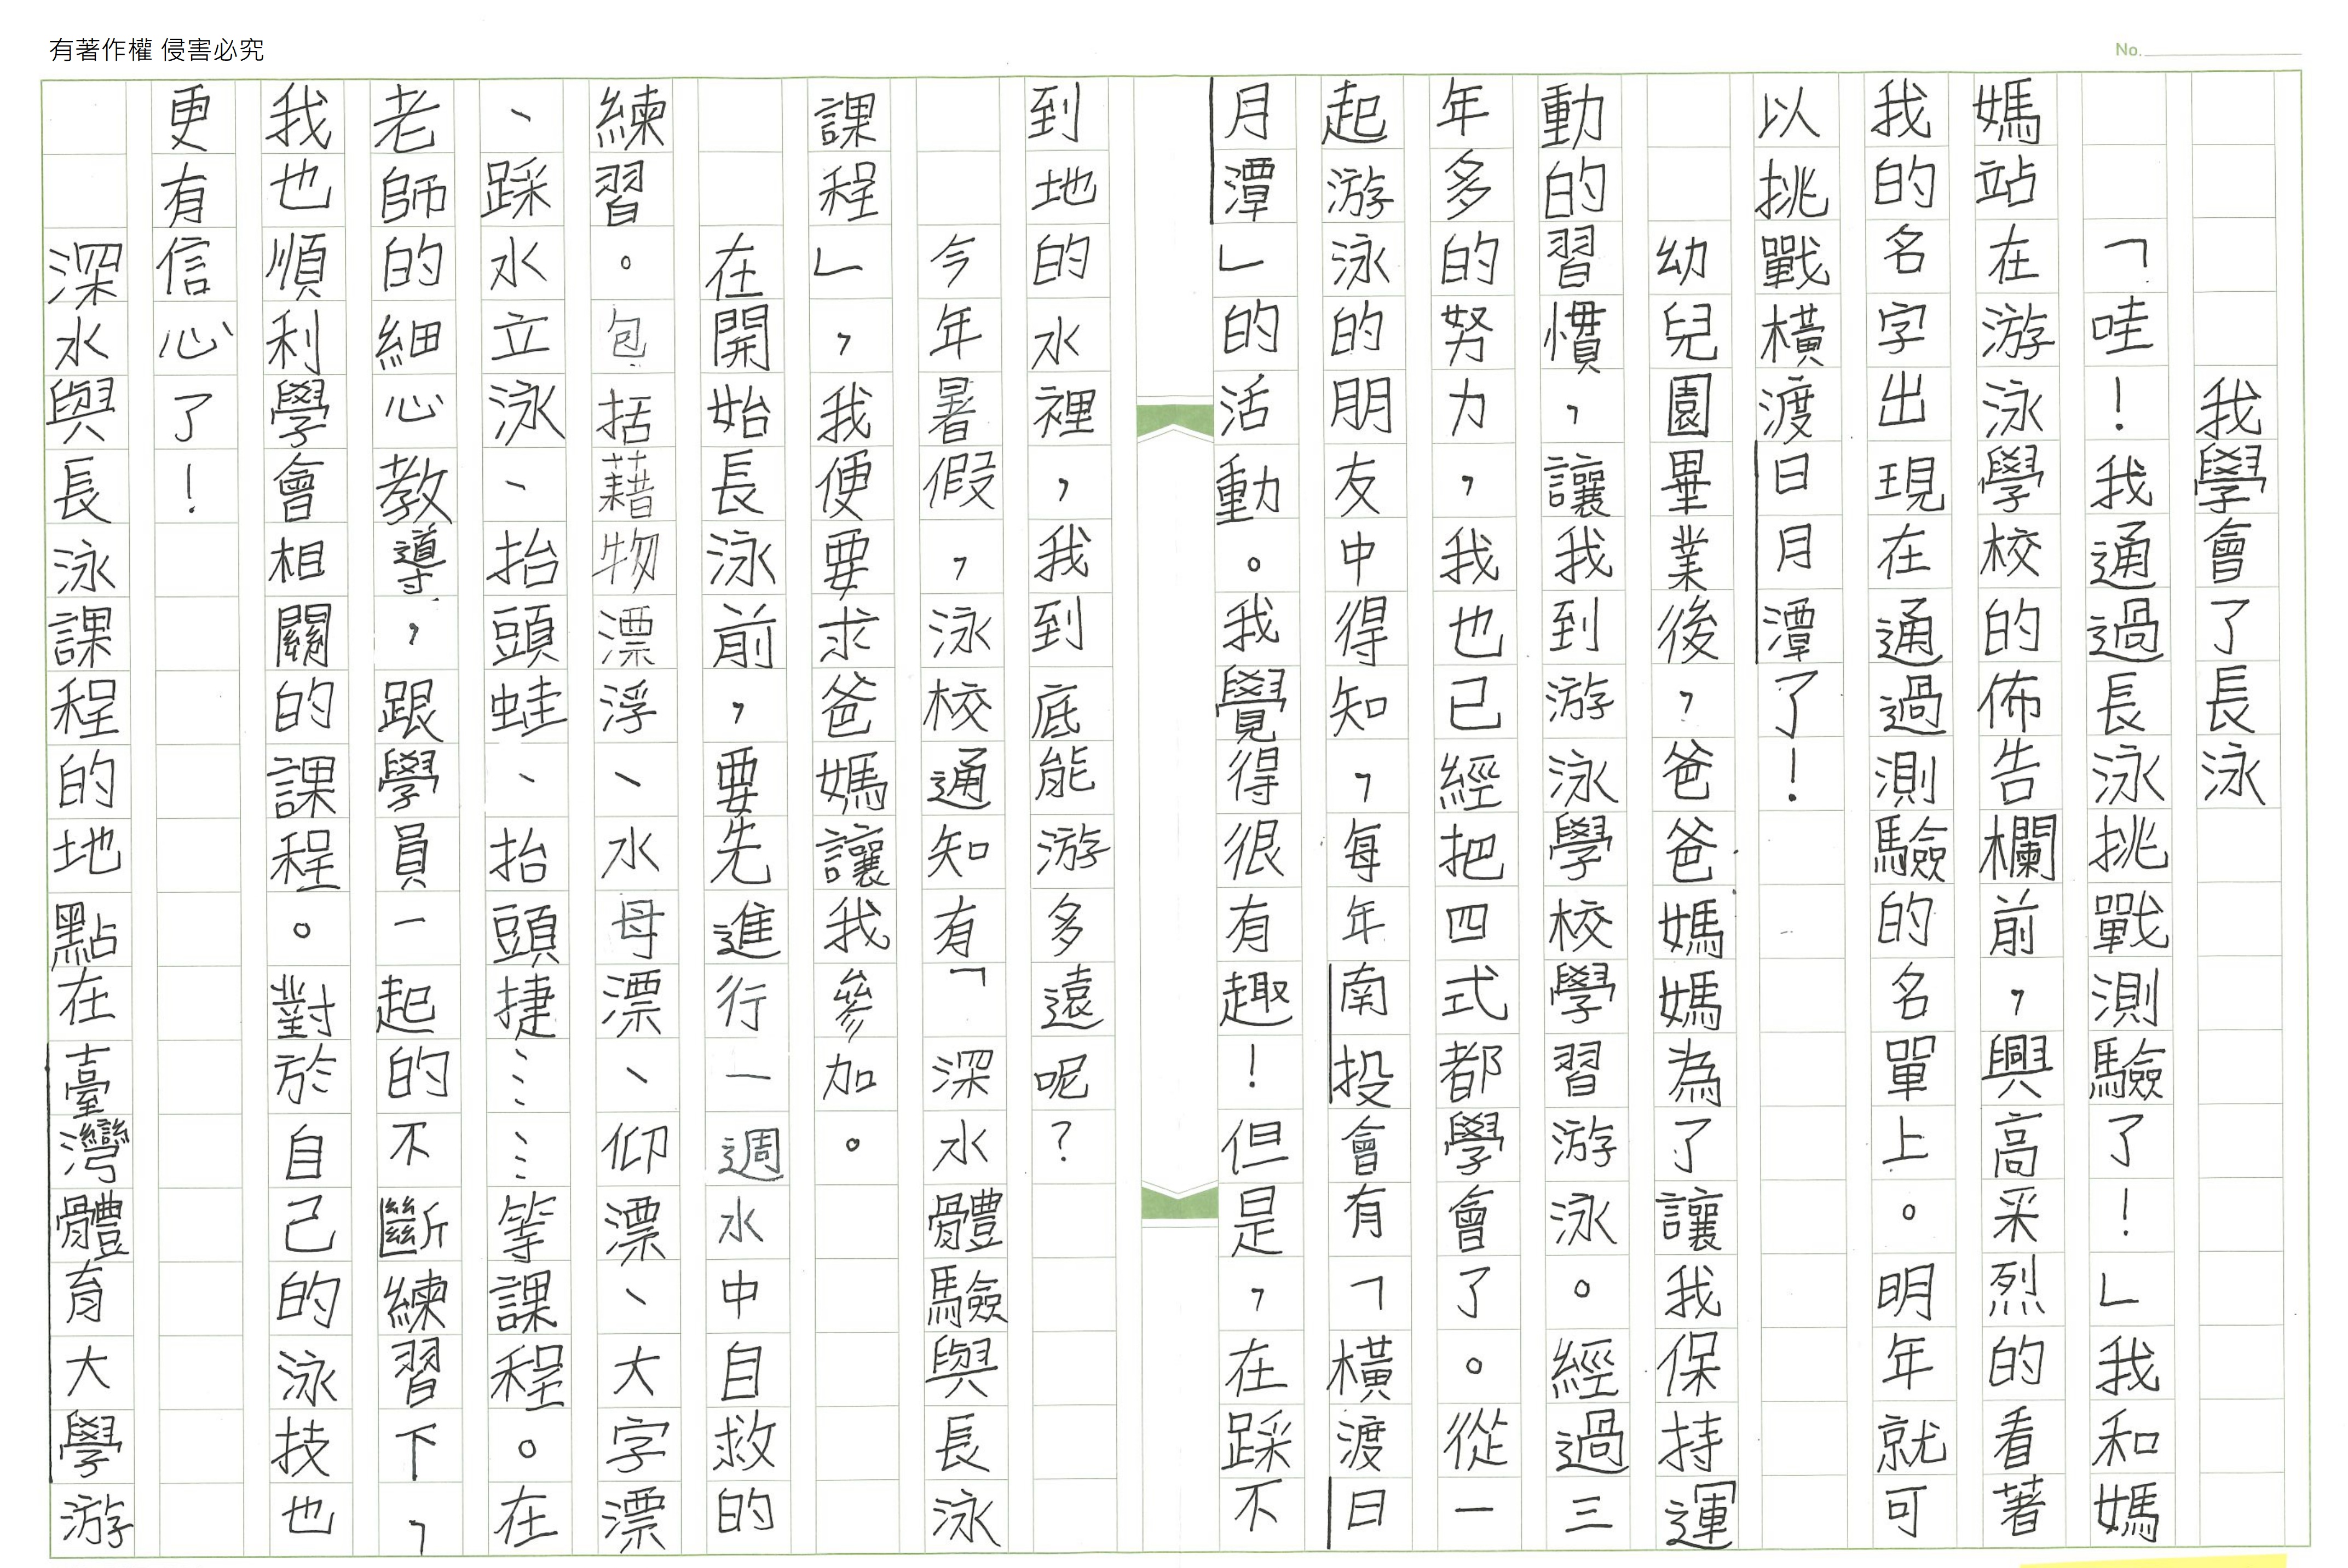 有著作權 侵害必究
No.
我學會了長泳
「哇！我通過長泳挑戰測驗了！」我和媽
媽站在游泳學校的佈告欄前，興高采烈的看著
我的名字出現在通過測驗的名單上。明年就可
以挑戰橫渡日月潭了！
幼兒園畢業後，爸爸媽媽為了讓我保持運
動的習慣，讓我到游泳學校學習游泳。經過三
年多的努力，我也已經把四式都學會了。從一
起游泳的朋友中得知，每年南投會有「橫渡日
月潭」的活動。我覺得很有趣！但是，在踩不
到地的水裡，我到底能游多遠呢？
今年暑假，泳校通知有「深水體驗與長泳
課程」，我便要求爸媽讓我參加。
在開始長泳前，要先進行一週水中自救的
練習。包括藉物漂浮、水母漂、仰漂、大字漂
、踩水立泳、抬頭蛙、抬頭捷……等課程。在
老師的細心教導，跟學員一起的不斷練習下，
我也順利學會相關的課程。對於自己的泳技也
更有信心了！
深水與長泳課程的地點在臺灣體育大學游